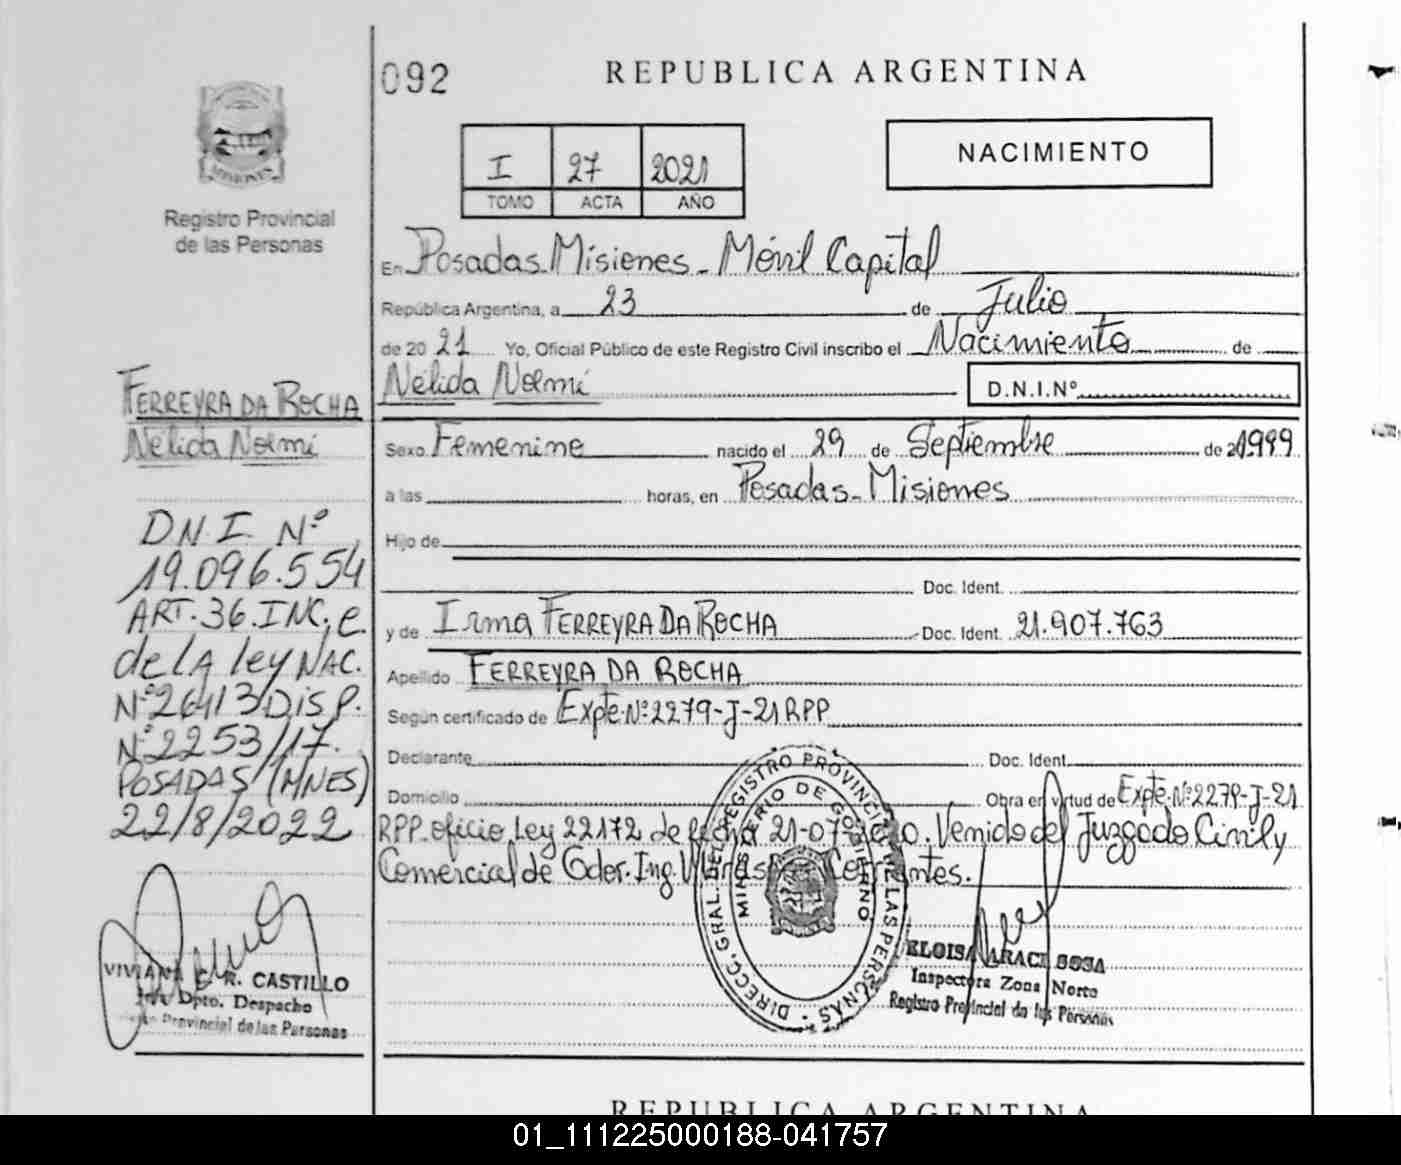 092
REPUBLICA ARGENTINA
I 27 2021
TOMO ACTA AÑO
NACIMIENTO
MISIONES
Registro Provincial
de las Personas
En Posadas-Misiones - Móvil Capital
República Argentina, a 23 de Julio
de 20 21 Yo, Oficial Público de este Registro Civil inscribo el Nacimiento de
Nélida Noemí D.N.I.Nº
Sexo Femenino nacido el 29 de Septiembre de 1999
a las horas, en Posadas - Misiones
Hijo de
Doc. Ident.
y de Irma FERREYRA DA ROCHA Doc. Ident. 21.907.763
Apellido FERREYRA DA ROCHA
Según certificado de Expte. Nº 2279-J-21 RPP
Declarante Doc. Ident.
Domicilio Obra en virtud de Expte. Nº 2279-J-21
RPP. oficio Ley 22172 de fecha 21-07- Venido del Juzgado Civil y
Comercial de Gdor. Ing. Corrientes.
FERREYRA DA ROCHA
Nélida Noemí
D.N.I. Nº
19.096.554
ART. 36. INC. e
de LA ley NAC.
Nº 26413 DISP.
Nº 2253/17.
POSADAS (MNES)
22/8/2022
VIVIANA R. CASTILLO
Dpto. Despacho
Provincial de las Personas
DIRECC. GRAL. DEL REGISTRO PROVINCIAL DE LAS PERSONAS
MINISTERIO DE GOBIERNO
ELOISA ARACI SOSA
Inspectora Zona Norte
Registro Provincial de las Personas
REPUBLICA ARGENTINA
01_111225000188-041757